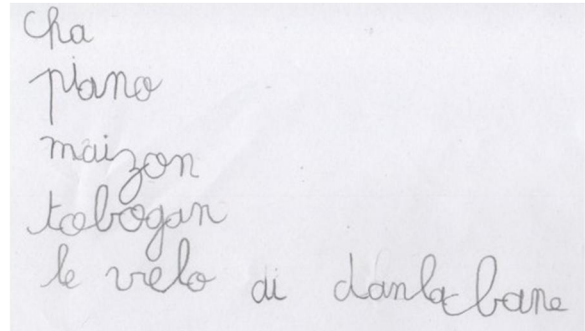 cha
piano
maizon
tobogan
le velo ai danlacbane